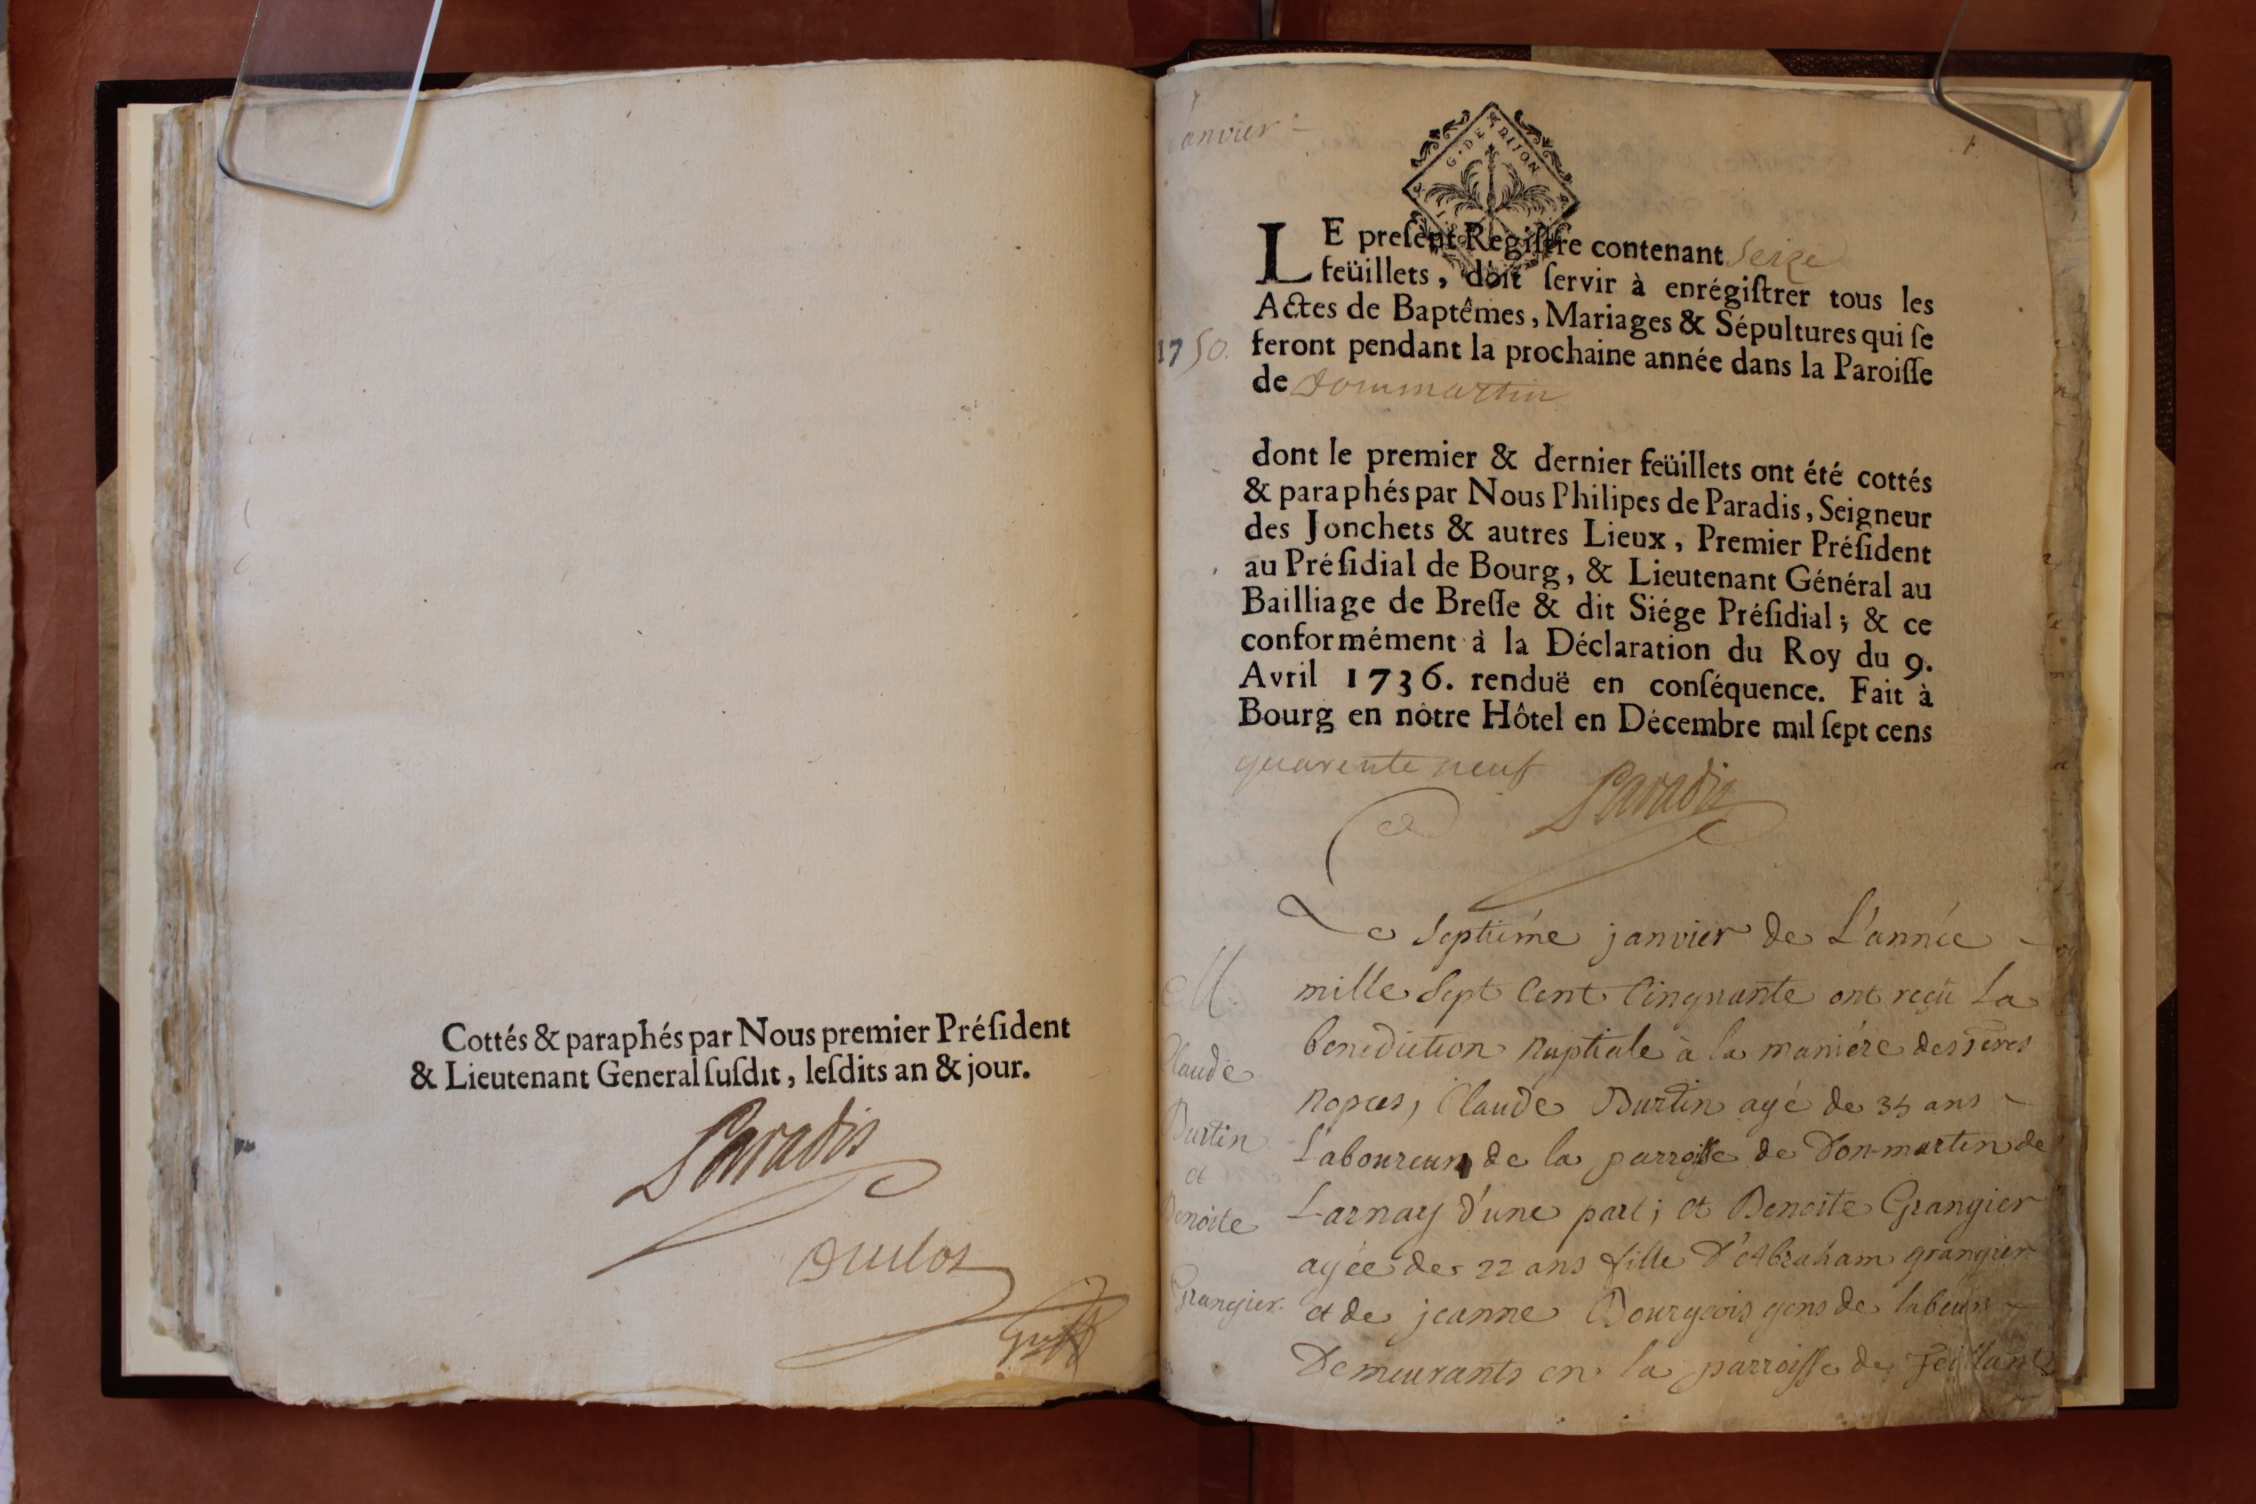 Cottés & paraphés par Nous premier Préſident
& Lieutenant General ſuſdit, leſdits an & jour.
Paradis
Duclos
anvier
G. DE DIJON
1750.
LE preſent Regiſtre contenant Seize
feüillets, doit ſervir à enrégiſtrer tous les
Actes de Baptêmes, Mariages & Sépultures qui ſe
feront pendant la prochaine année dans la Paroiſſe
de Dommartin
dont le premier & dernier feüillets ont été cottés
& paraphés par Nous Philipes de Paradis, Seigneur
des Jonchets & autres Lieux, Premier Préſident
au Préſidial de Bourg, & Lieutenant Général au
Bailliage de Breſſe & dit Siége Préſidial; & ce
conformément à la Déclaration du Roy du 9.
Avril 1736. renduë en conſéquence. Fait à
Bourg en nôtre Hôtel en Décembre mil ſept cens
quarente neuf
Paradis
M.
Claude
Burtin
et
Benoite
Grangier.
Le Septiéme janvier de L'année
mille Sept Cent Cinquante ont reçû La
benediction Nuptiale à la maniére des 1eres
Nopces, Claude Burtin agé de 35 ans
Laboureur de la parroiſſe de Don-martin de
Larnay d'une part; et Benoite Grangier
agée de 22 ans fille D'Abraham grangier
et de jeanne Bourgeois gens de labeur
Demeurants en la parroiſſe de Feillants